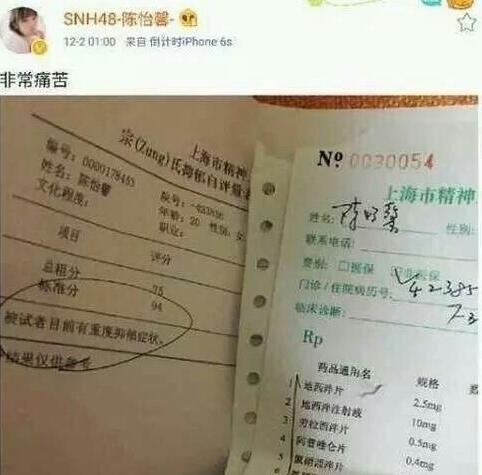 SNH48-陈怡馨-
12-2 01:00 来自 倒计时iPhone 6s
非常痛苦
上海市精神
宗(Zung)氏抑郁自评量表
编号:0000178453
姓名:陈怡馨
年龄:20 性别:女
文化程度:
职业:
项目 评分
总粗分 75
标准分 94
被试者目前有重度抑郁症状。
结果仅供参考
Nº 0030054
上海市精神
姓名: 陈怡馨 性别:
联系电话:
费别: □医保
门诊/住院病历号:
临床诊断:
Rp
药品通用名 规格 数
1 地西泮片 2.5mg
2 地西泮注射液 10mg
3 劳拉西泮片 0.5mg
4 阿普唑仑片 0.4mg
5 氯硝西泮片